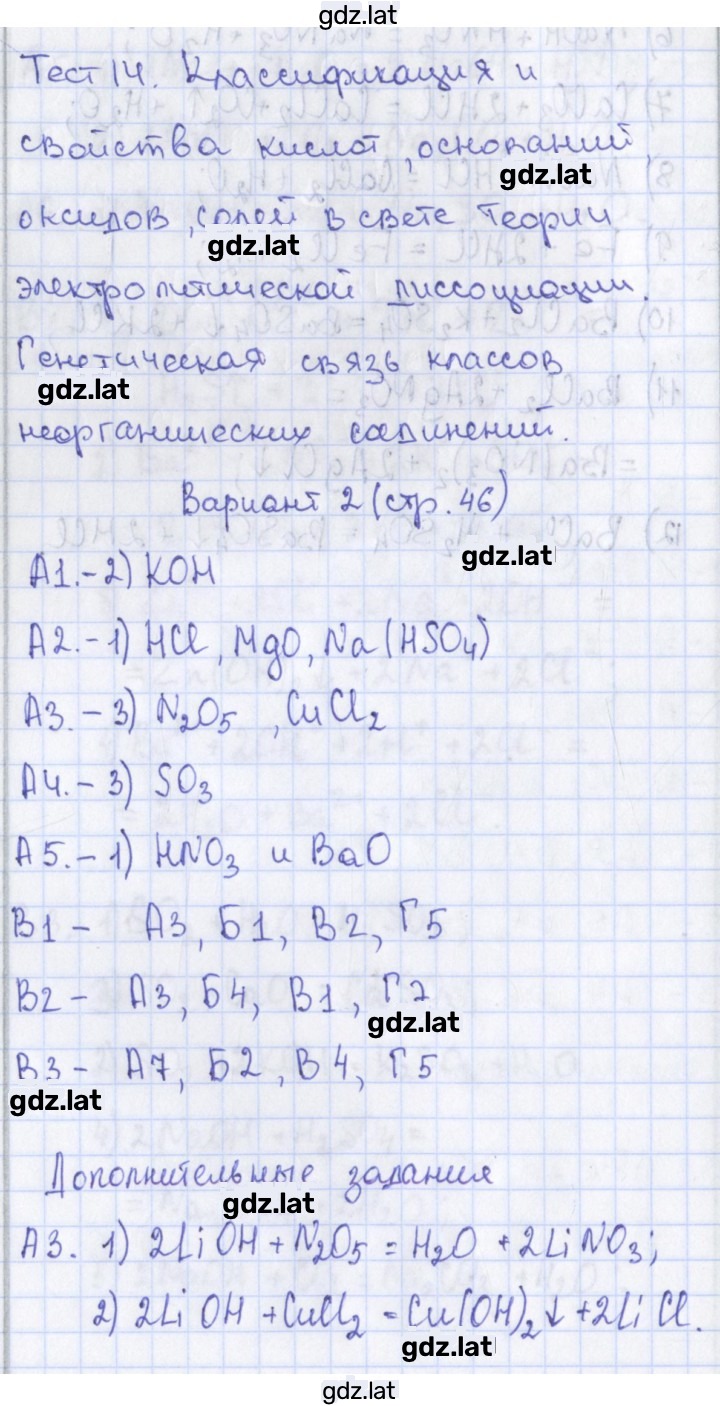 gdz.lat
Тест 14. Классификация и
свойства кислот, оснований,
gdz.lat
оксидов, солей в свете теории
gdz.lat
электролитической диссоциации.
Генетическая связь классов
gdz.lat
неорганических соединений.
Вариант 2 (стр. 46)
gdz.lat
А1.-2) KOH
А2.-1) HCl, MgO, Na(HSO₄)
А3.-3) N₂O₅, CuCl₂
А4.-3) SO₃
А5.-1) HNO₃ и BaO
В1 - А3, Б1, В2, Г5
В2 - А3, Б4, В1, Г2
gdz.lat
В3 - А7, Б2, В4, Г5
gdz.lat
Дополнительные задания
gdz.lat
А3. 1) 2LiOH + N₂O₅ = H₂O + 2LiNO₃;
2) 2LiOH + CuCl₂ = Cu(OH)₂↓ + 2LiCl.
gdz.lat
gdz.lat